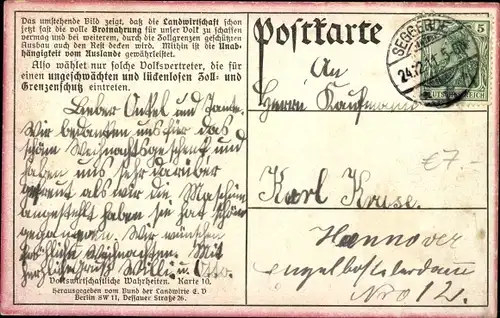 Das umstehende Bild zeigt, daß die Landwirtschaft schon
jetzt fast die volle Brotnahrung für unser Volk zu schaffen
vermag und bei weiterem, durch die Zollgrenzen geschützten
Ausbau auch den Rest decken wird. Mithin ist die Unab-
hängigkeit vom Auslande gewährleistet.
Also wählet nur solche Volksvertreter, die für
einen ungeschwächten und lückenlosen Zoll- und
Grenzenschutz eintreten.
Lieber Onkel und Tante.
Wir bedanken uns für das
schöne Weihnachtsgeschenk und
haben uns sehr darüber
gefreut als wir die Maschine
angestellt haben sie hat schön
gegangen. Wir wünschen
fröhliche Weihnachten. Mit
herzlichem Gruß Willi u. Otto.
Volkswirtschaftliche Wahrheiten. Karte 10.
Herausgegeben vom Bund der Landwirte E. V
Berlin SW 11, Dessauer Straße 26.
Postkarte
5
24.12.11. 5-6N
DEUTSCHES REICH
An
Herrn Kaufmann
€7.-
Karl Kruse.
Hannover
Engelbosteler damm
Nro 12.